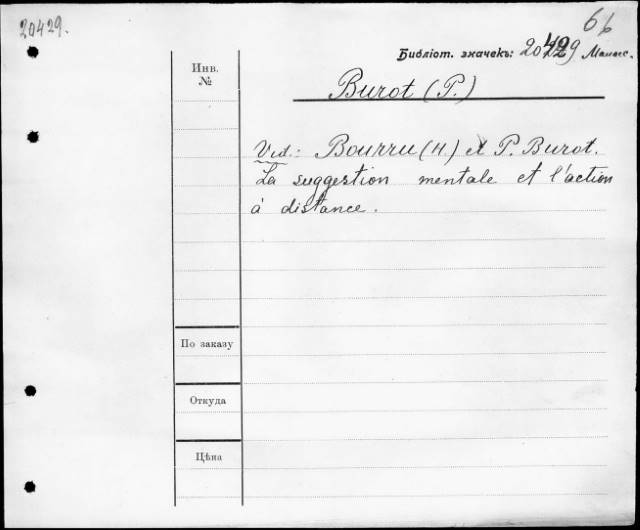 20429.
6b
Библіот. значекъ: 20429
Инв.
№
Burot (P.)
Vid.: Bourru (H.) et P. Burot.
La suggestion mentale et l'action
à distance.
По заказу
Откуда
Цѣна